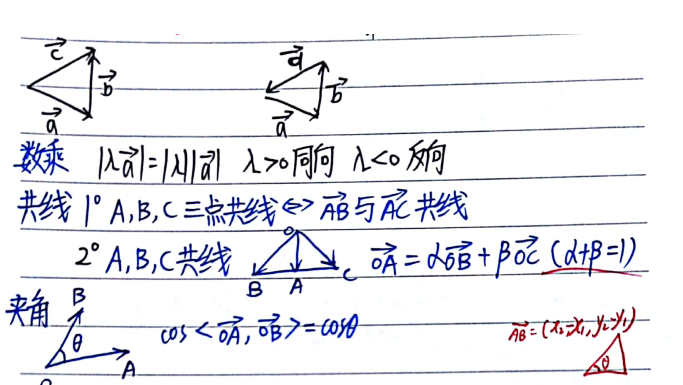 c⃗ b⃗ a⃗
d⃗ b⃗ a⃗
数乘 |λa⃗|=|λ||a⃗| λ>0同向 λ<0反向
共线 1° A,B,C三点共线⇔AB⃗与AC⃗共线
2° A,B,C共线 O B A C OA⃗=αOB⃗+βOC⃗ (α+β=1)
夹角 B θ A cos<OA⃗,OB⃗>=cosθ
AB⃗=(x₂-x₁,y₂-y₁)
θ